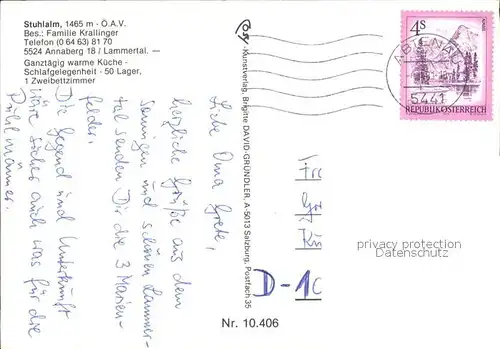 Stuhlalm, 1465 m - Ö.A.V.
Bes.: Familie Krallinger
Telefon (0 64 63) 81 70
5524 Annaberg 18 / Lammertal. —
Ganztägig warme Küche -
Schlafgelegenheit - 50 Lager,
1 Zweibettzimmer
Liebe Oma Grete,
herzliche Grüße aus dem
sonnigen und schönen Lammer-
tal senden Dir die 3 Marien-
felder.
Die Gegend und Unterkunft
wäre sicher auch was für die
Pühlmänner.
Cosy-Kunstverlag, Brigitte DAVID-GRÜNDLER, A-5013 Salzburg, Postfach 35
4S
REPUBLIK ÖSTERREICH
5441
D-1
privacy protection
Datenschutz
Nr. 10.406